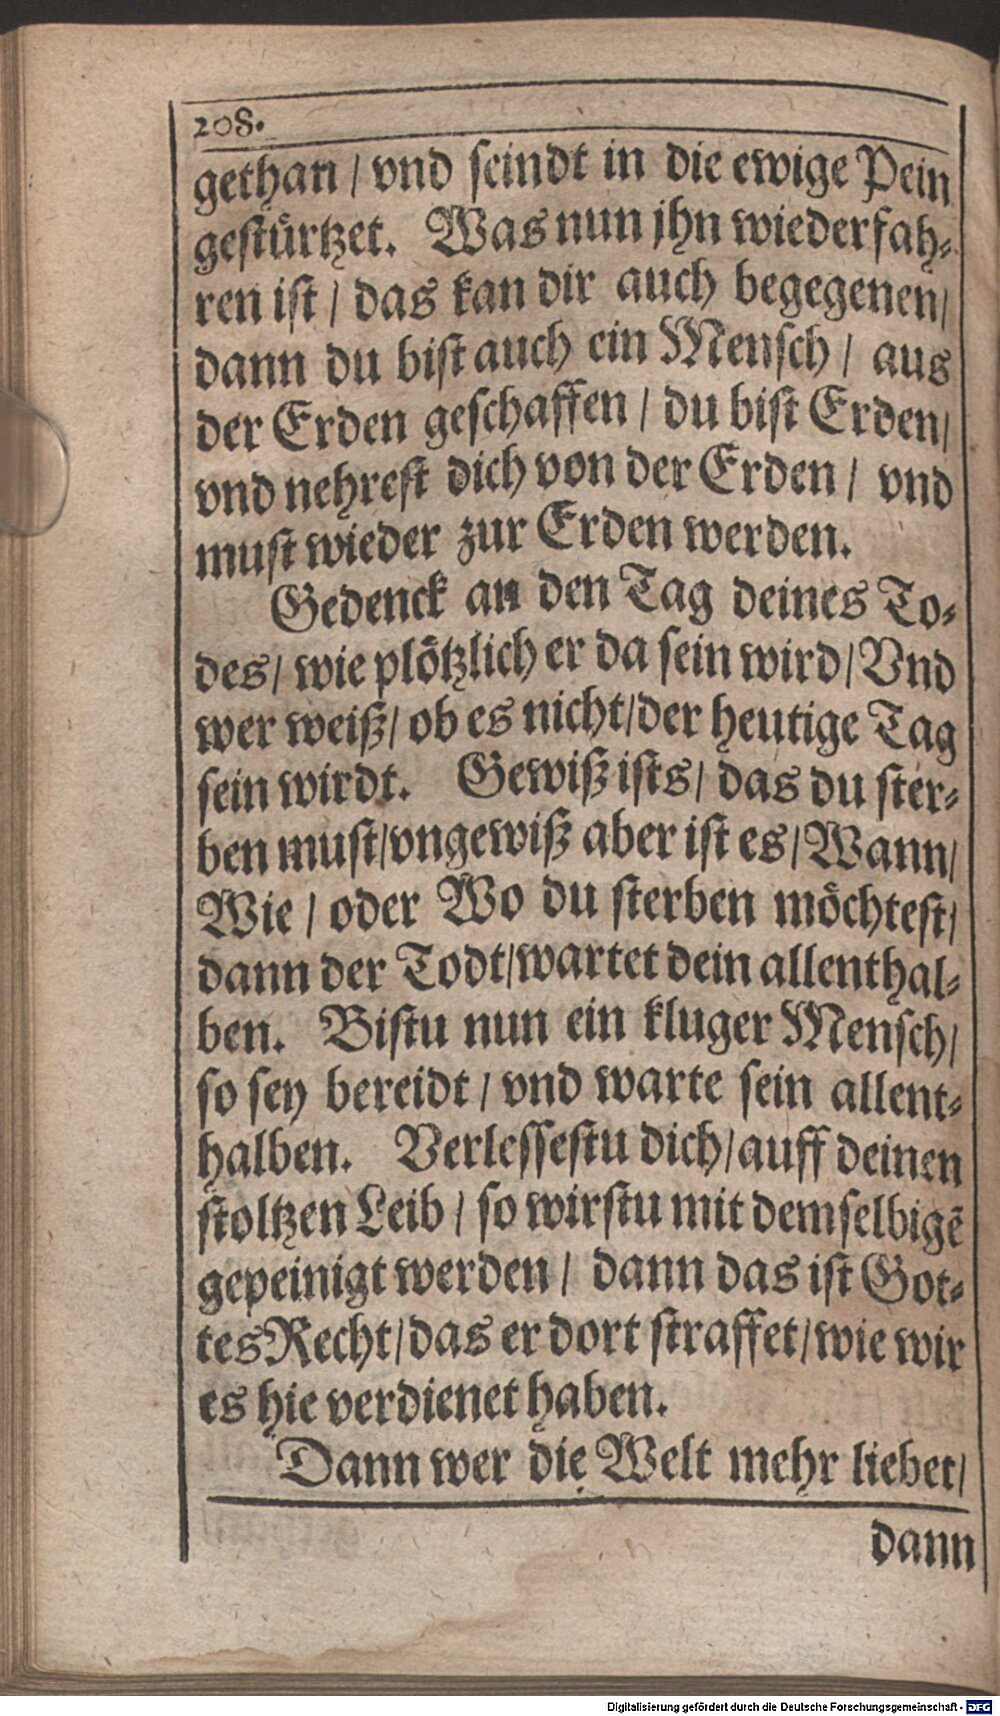 208.
gethan / vnd seindt in die ewige Pein
gestürtzet. Was nun jhn wiederfah-
ren ist / das kan dir auch begegenen/
dann du bist auch ein Mensch / aus
der Erden geschaffen / du bist Erden/
vnd nehrest dich von der Erden / vnd
must wieder zur Erden werden.
Gedenck an den Tag deines To-
des/ wie plötzlich er da sein wird/ Vnd
wer weiß/ ob es nicht/der heutige Tag
sein wirdt. Gewiß ists/ das du ster-
ben must/vngewiß aber ist es/Wann/
Wie / oder Wo du sterben möchtest/
dann der Todt/wartet dein allenthal-
ben. Bistu nun ein kluger Mensch/
so sey bereidt / vnd warte sein allent-
halben. Verlessestu dich/auff deinen
stoltzen Leib / so wirstu mit demselbigẽ
gepeinigt werden / dann das ist Got-
tes Recht/das er dort straffet/wie wir
es hie verdienet haben.
Dann wer die Welt mehr liebet/
dann
Digitalisierung gefördert durch die Deutsche Forschungsgemeinschaft - DFG